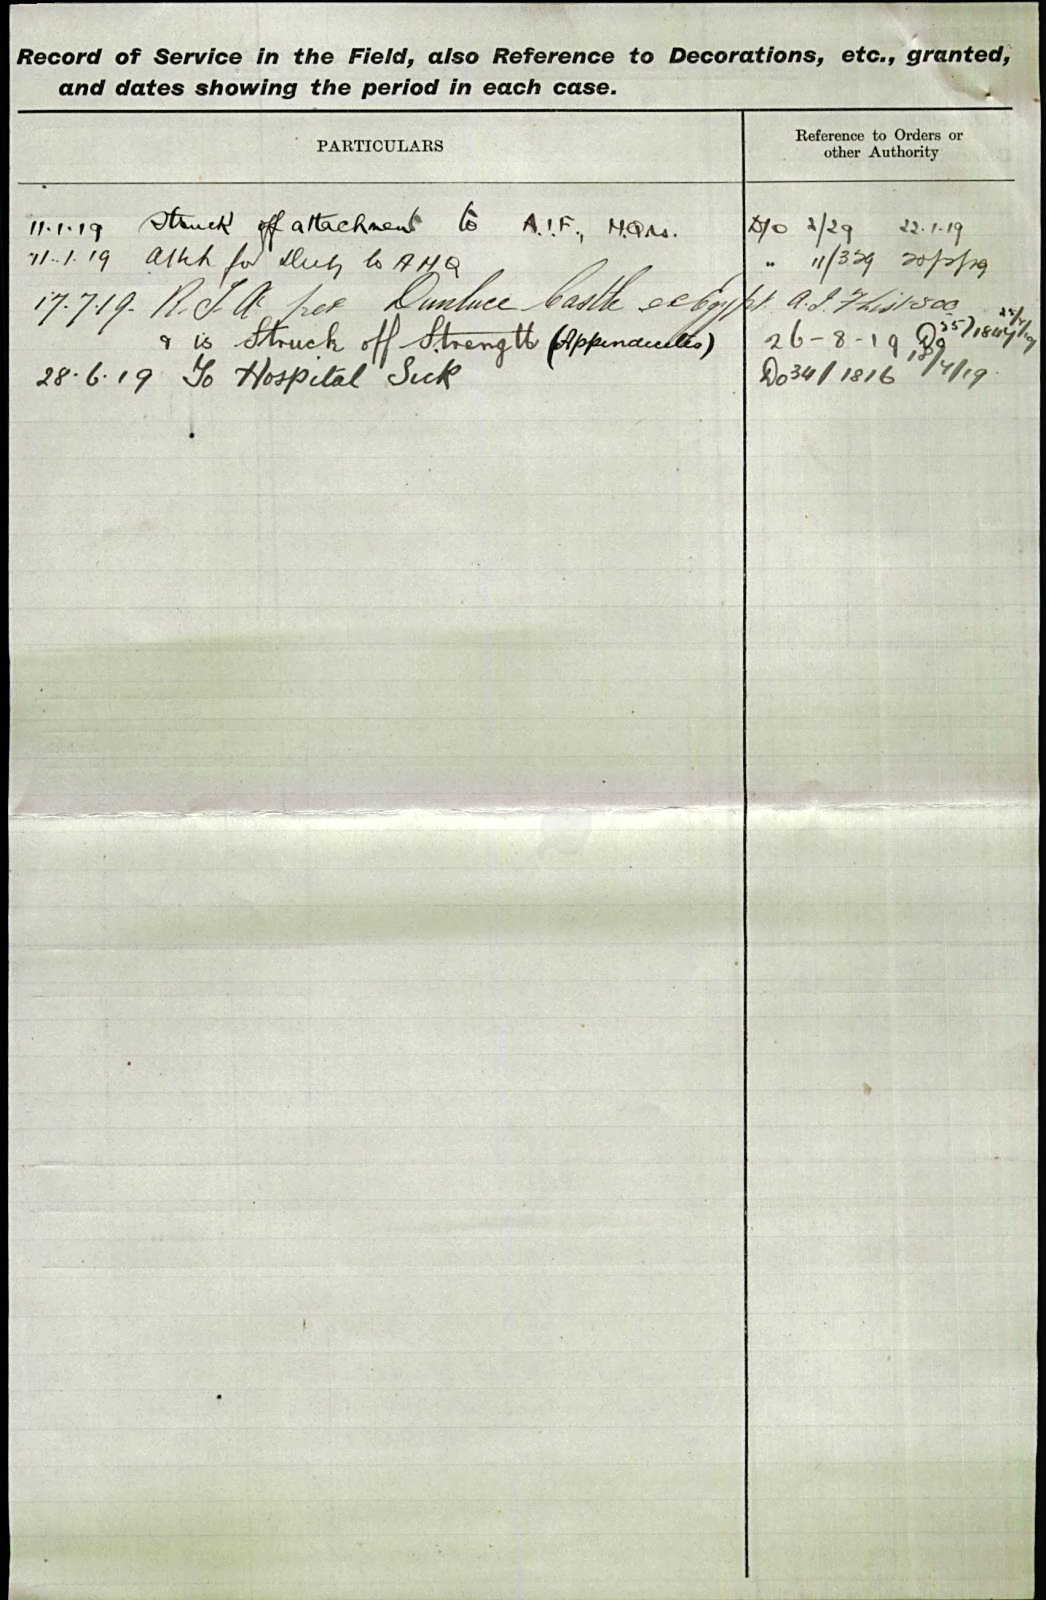 Record of Service in the Field, also Reference to Decorations, etc., granted,
and dates showing the period in each case.
PARTICULARS
Reference to Orders or
other Authority
11.1.19 Struck off attachment to A.I.F., H.Qrs. D/O 2/29 22.1.19
11.1.19 Attch for Duty to A H Q " 11/329
17.7.19. R.T.A. per Dunluce Castle ex Egypt. A.I.F. List 500
& is Struck off Strength (Appendicitis) 26-8-19 Do 35/1847
28.6.19 To Hospital Sick Do 34/1816 18/7/19.